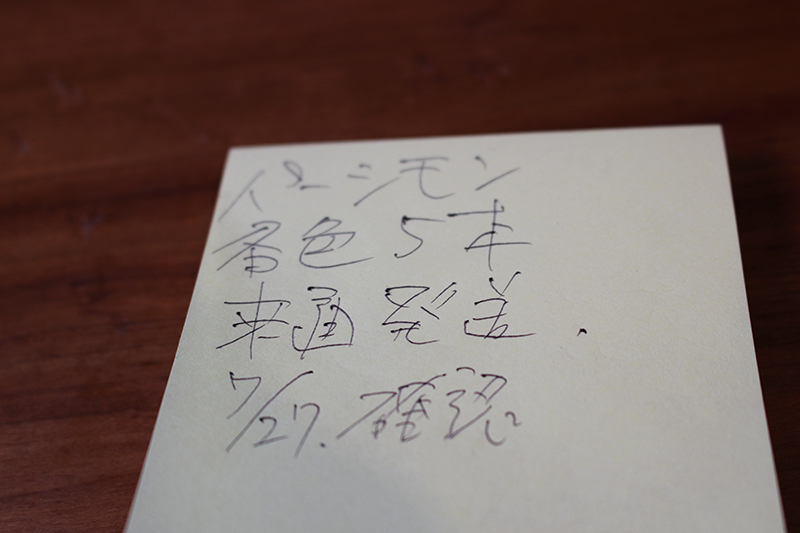 パーシモン
各色5本
来週発送.
7/27.確認